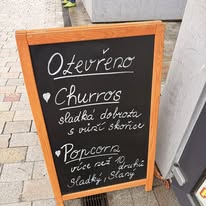 Otevřeno
Churros
sladká dobrota
s vůní skořice
Popcorn
více než 10 druhů
Sladký, Slaný